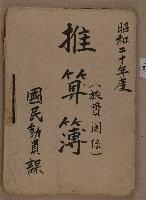 昭和二十年度
推算簿
(旅費関係)
國民動員課